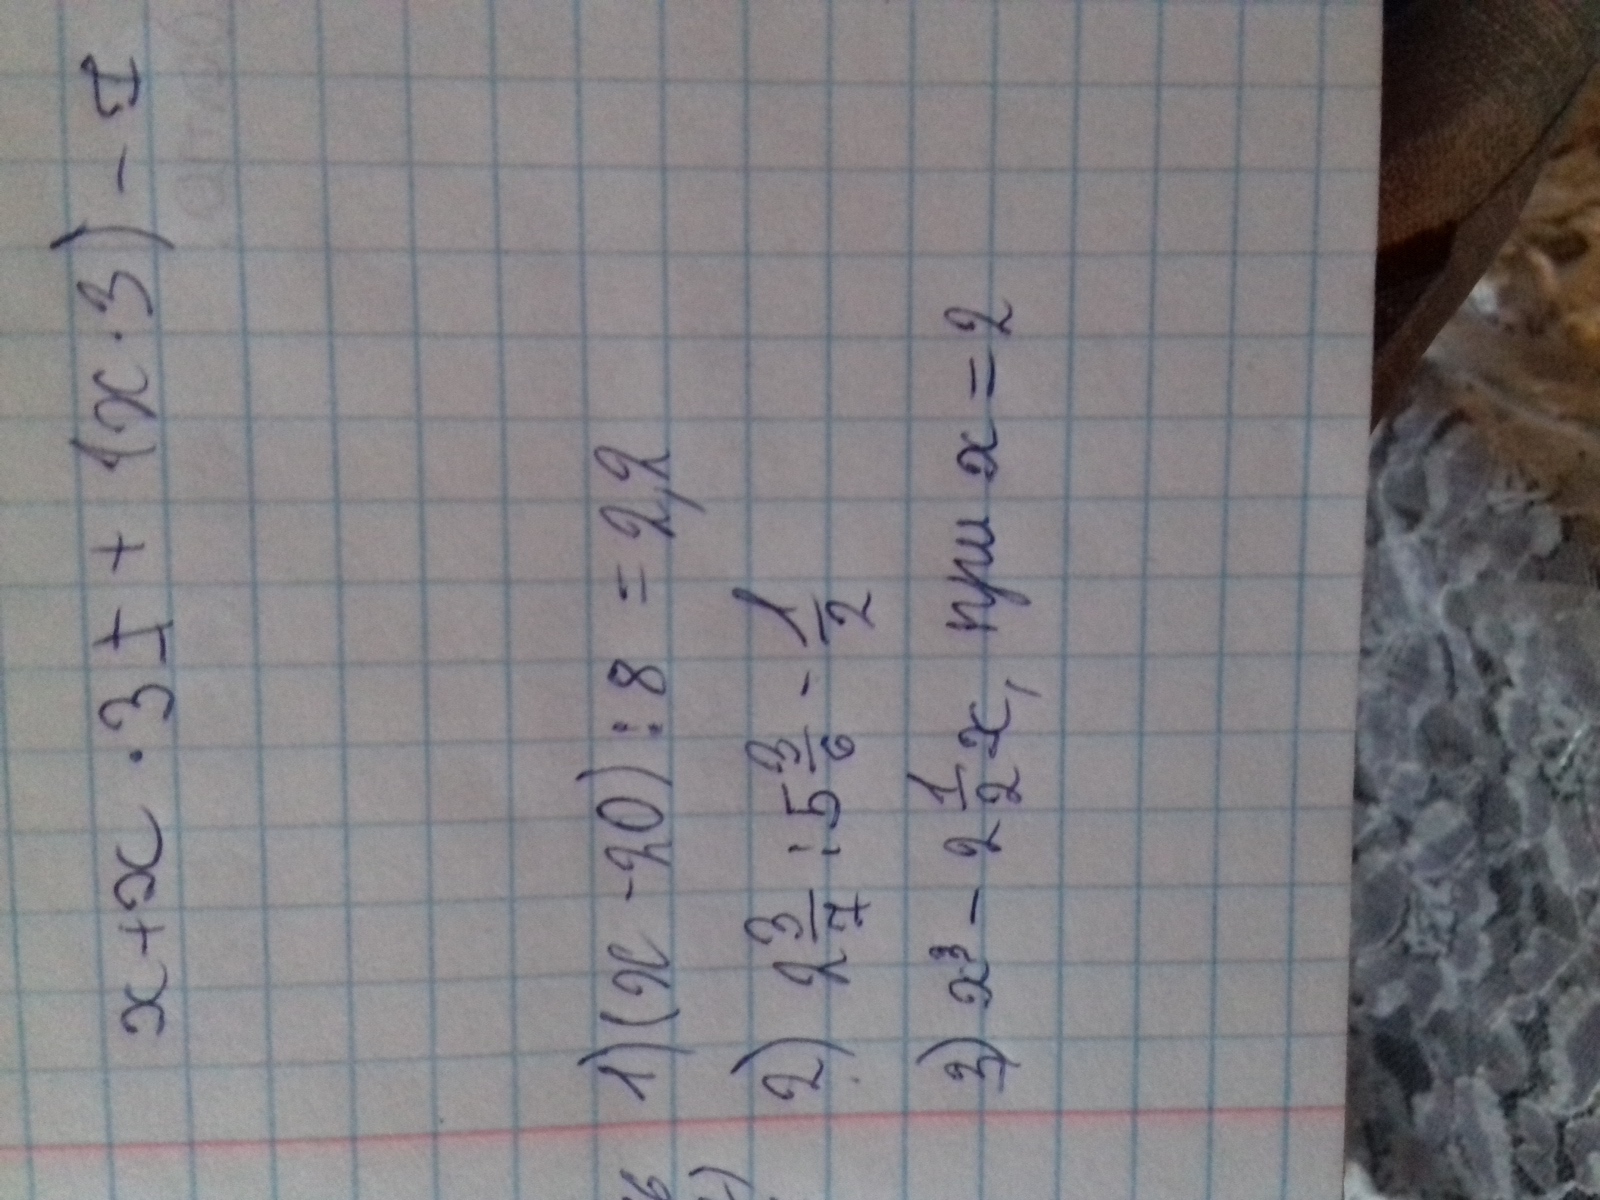 x+x · 3 + (x · 3) -
1) (x - 20) : 8 = 2,2
2) 2 3/7 : 5 3/6 - 1/2
3) x³ - 2 1/2 x, при x = 2